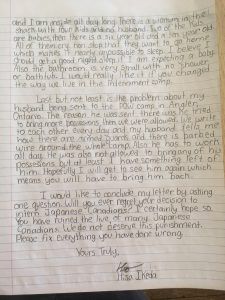 and I am inside all day long. There is a woman in the
shack with four kids and no husband. Two of the kids
are babies, then there is a six year old and a ten year old.
All of them cry non stop that they want to go home
which makes it nearly impossible to sleep. I believe I
should get a good night sleep if I am expecting a baby
Also the bathroom is very small with no shower
or bathtub. I would really like it if you changed
the way we live in the Internment camp.
Last but not least is the problem about my
husband being sent to the POW camp in Angler,
Ontario. The reason he was sent there was he tried
to bring more possessions than we were allowed. We write
to each other every day and my husband tells me
how there are armed guards and there is barbed
wire around the whole camp. Also he has to work
all day. He was also not allowed to bring any of his
possesions but at least I have something left of
him. Hopefully I will get to see him again which
means you will have to bring him back.
I would like to conclude my letter by asking
one question. Will you ever regret your decision to
intern Japanese Canadians? I certainly hope so.
You have ruined the lives of many Japanese
Canadians. We do not deserve this punishment.
Please fix everything you have done wrong.
Yours Truly,
Ikeda